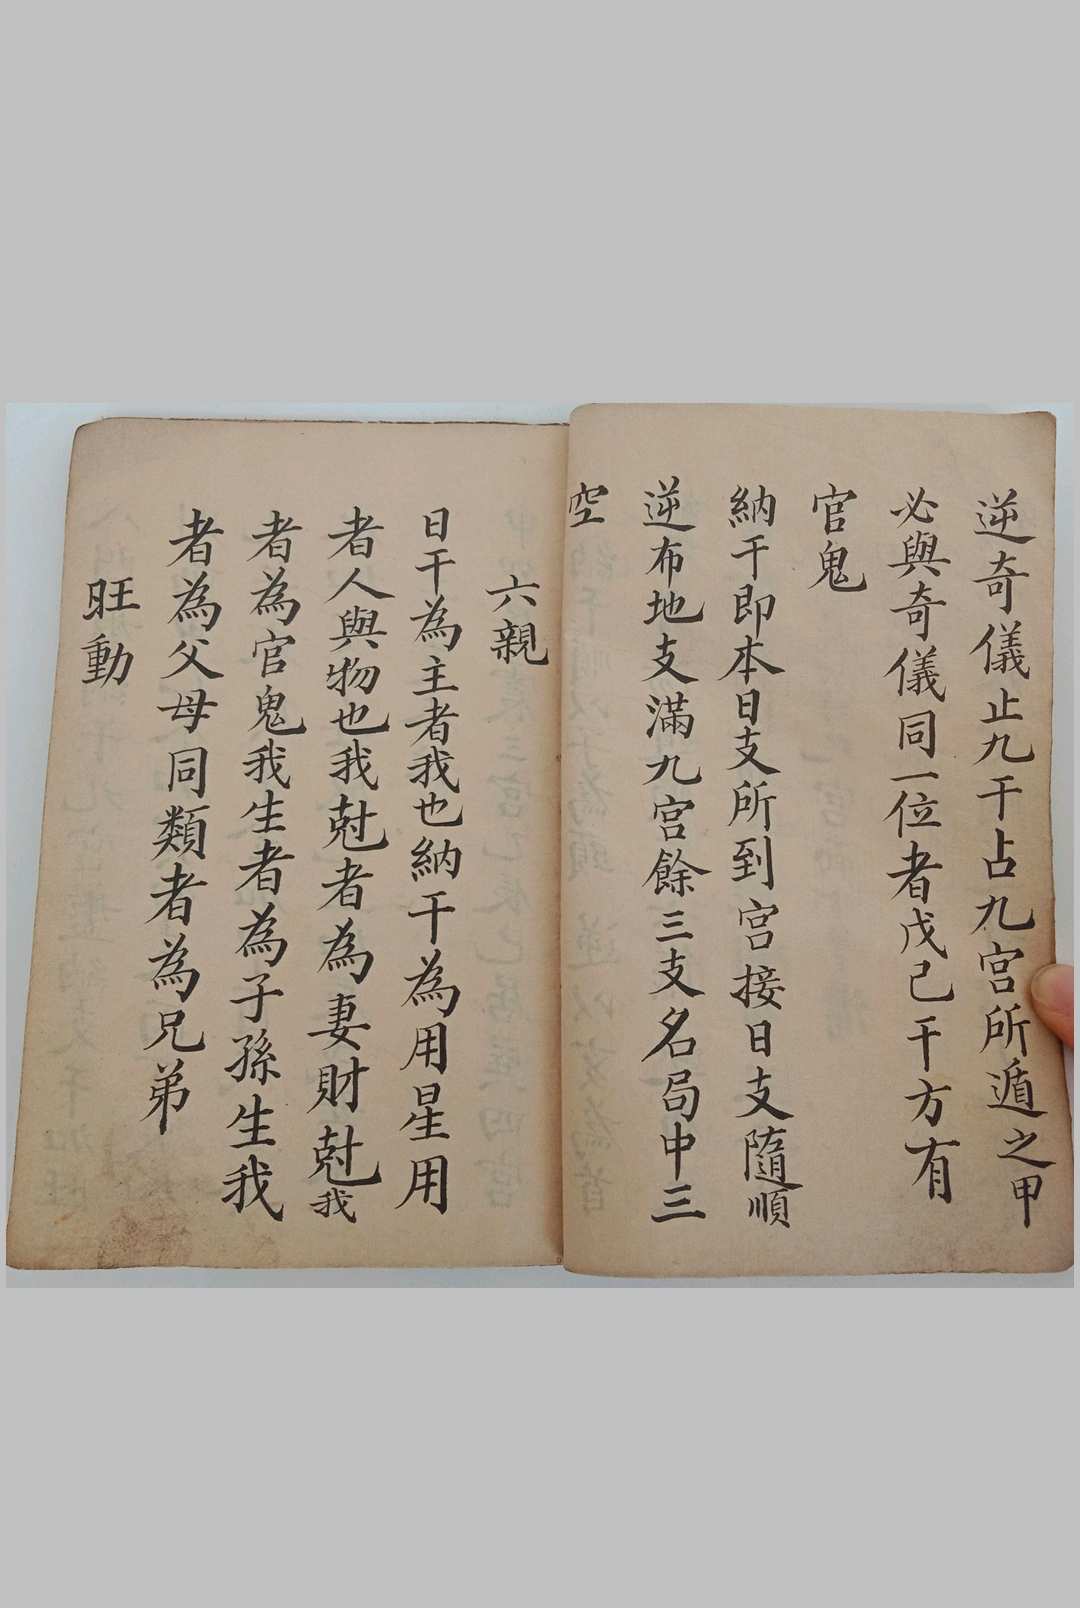 逆奇儀止九干占九宮所遁之甲
必與奇儀同一位者戊己干方有
官鬼
納干即本日支所到宮接日支隨順
逆布地支滿九宮餘三支名局中三
空
六親
日干為主者我也納干為用星用
者人與物也我尅者為妻財尅我
者為官鬼我生者為子孫生我
者為父母同類者為兄弟
旺動